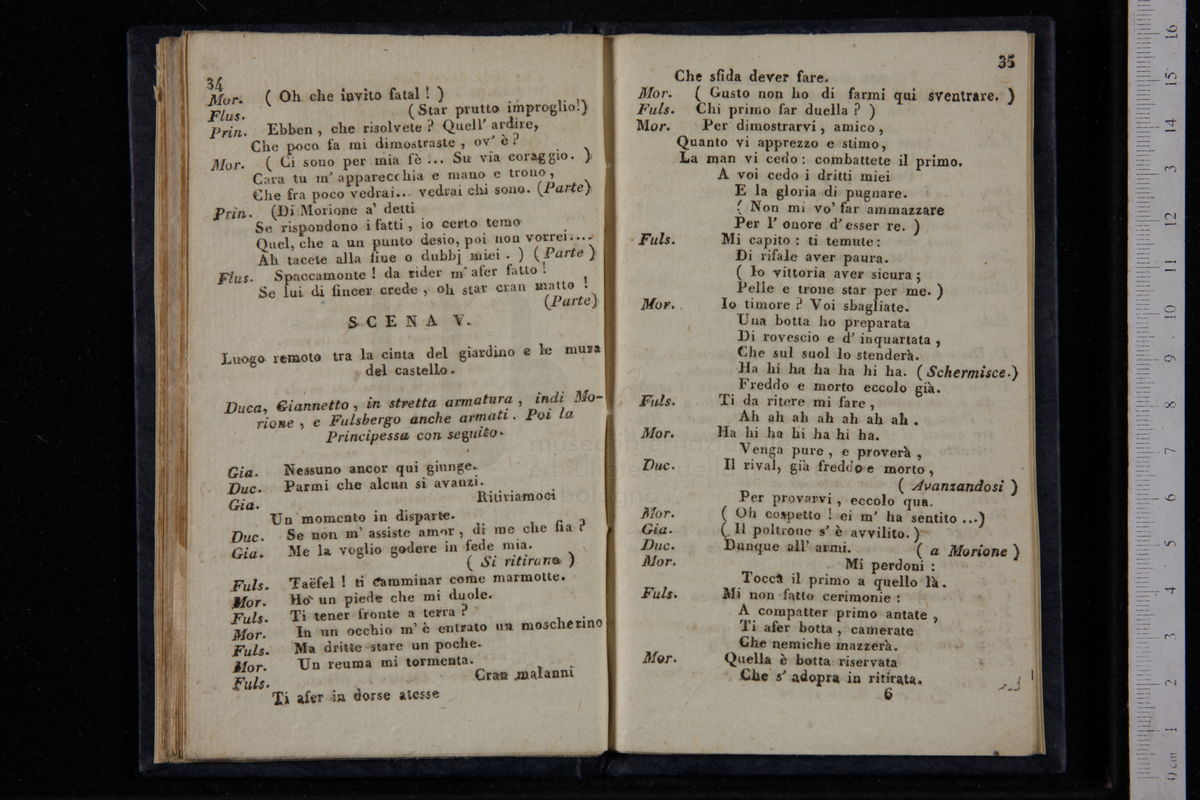 34
Mor. ( Oh che invito fatal ! )
Flus. (Star prutto improglio!)
Prin. Ebben , che risolvete ? Quell' ardire,
Che poco fa mi dimostraste , ov' è ?
Mor. ( Ci sono per mia fè ... Su via coraggio. )
Cara tu m' apparecchia e mano e trono ,
Che fra poco vedrai... vedrai chi sono. (Parte)
Prin. (Di Morione a' detti
Se rispondono i fatti , io certo temo
Quel, che a un punto desio, poi non vorrei....
Ah tacete alla fine o dubbj miei . ) ( Parte )
Flus. Spaccamonte ! da rider m' afer fatto !
Se lui di fincer crede , oh star cran matto !
(Parte)
SCENA V.
Luogo remoto tra la cinta del giardino e le mura
del castello.
Duca, Giannetto , in stretta armatura , indi Mo-
rione , e Fulsbergo anche armati . Poi la
Principessa con seguito.
Gia. Nessuno ancor qui giunge.
Duc. Parmi che alcun si avanzi.
Gia. Ritiriamoci
Un momento in disparte.
Duc. Se non m' assiste amor , di me che fia ?
Gia. Me la voglio godere in fede mia.
( Si ritirano )
Fuls. Taëfel ! ti camminar come marmotte.
Mor. Ho un piede che mi duole.
Fuls. Ti tener fronte a terra ?
Mor. In un occhio m' è entrato un moscherino
Fuls. Ma dritte stare un poche.
Mor. Un reuma mi tormenta.
Fuls. Cran malanni
Ti afer in dorse atesse
35
Che sfida dever fare.
Mor. ( Gusto non ho di farmi qui sventrare. )
Fuls. Chi primo far duella ? )
Mor. Per dimostrarvi , amico ,
Quanto vi apprezzo e stimo,
La man vi cedo : combattete il primo.
A voi cedo i dritti miei
E la gloria di pugnare.
( Non mi vo' far ammazzare
Per l' onore d' esser re. )
Fuls. Mi capito : ti temute :
Di rifale aver paura.
( Io vittoria aver sicura ;
Pelle e trone star per me. )
Mor. Io timore ? Voi sbagliate.
Una botta ho preparata
Di rovescio e d' inquartata ,
Che sul suol lo stenderà.
Ha hi ha ha ha hi ha. ( Schermisce.)
Freddo e morto eccolo già.
Fuls. Ti da ritere mi fare ,
Ah ah ah ah ah ah ah .
Mor. Ha hi ha hi ha hi ha.
Venga pure , e proverà ,
Duc. Il rival, già freddo e morto ,
( Avanzandosi )
Per provarvi , eccolo qua.
Mor. ( Oh cospetto ! ei m' ha sentito ...)
Gia. ( Il poltrone s' è avvilito. )
Duc. Dunque all' armi. ( a Morione )
Mor. Mi perdoni :
Tocca il primo a quello là.
Fuls. Mi non fatto cerimonie :
A compatter primo antate ,
Ti afer botta , camerate
Che nemiche mazzerà.
Mor. Quella è botta riservata
Che s' adopra in ritirata.
6